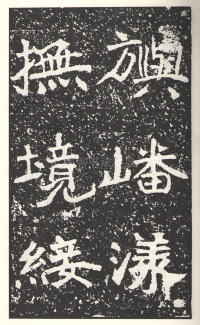 旟嶓漾
撫境綏